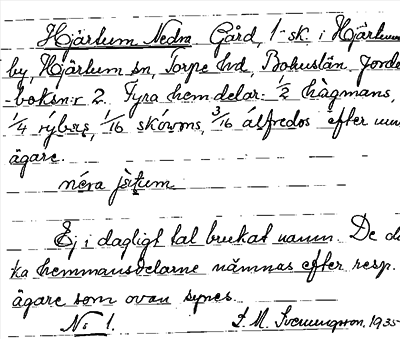 Hjärtum Nedra Gård, 1-sk. i Hjärtums
by, Hjärtum sn, Torpe hd, Bohuslän. Jorde-
boksn:r 2. Fyra hemdelar: 1/2 hågmans,
1/4 rýbǝrs, 1/16 skóvns, 3/16 álfredos efter
ägare.
néra jǝ̀tum.
Ej i dagligt tal brukat namn. De
ka hemmansdelarne nämnas efter resp.
ägare som ovan synes.
No 1. D. M. Svenungsson, 1935